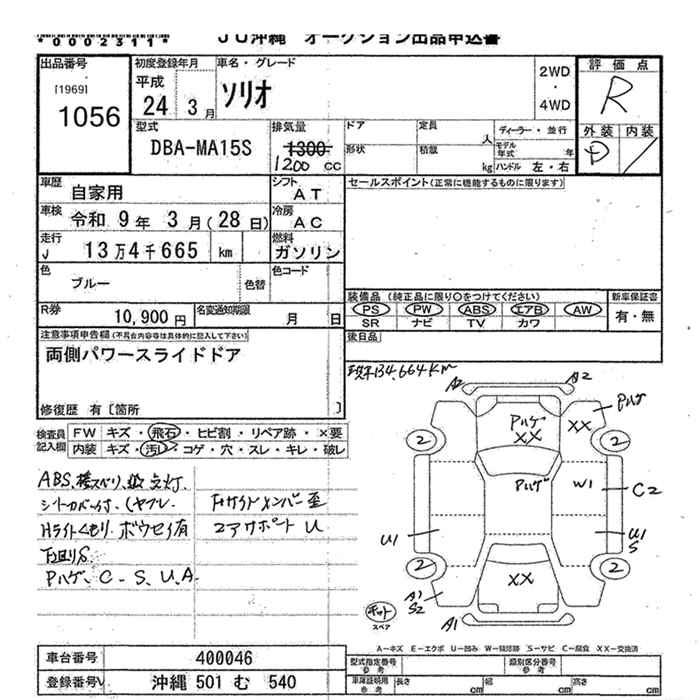 *0002311*
JU沖縄 オークション出品申込書
出品番号
[1969]
1056
初度登録年月
平成
24 3月
車名・グレード
ソリオ
2WD
・
4WD
評価点
R
外装 内装
D /
型式
DBA-MA15S
排気量
1300
1200 cc
ドア
定員
人
形状
積載
kg
ディーラー・並行
モデル年式 年
ハンドル 左・右
車歴
自家用
シフト
AT
セールスポイント(正常に機能するものに限ります)
車検
令和 9年 3月(28日)
冷房
AC
走行
13万4千665 km
燃料
ガソリン
色
ブルー
色替
色コード
R券
10,900円
名変通知期限
月 日
装備品 (純正品に限り〇をつけてください)
PS PW ABS エアB AW
SR ナビ TV カワ
新車保証書
有・無
後日品
注意事項申告欄(不具合内容等は具体的に記入して下さい)
両側パワースライドドア
修復歴 有〔箇所 〕
現車134,664km
検査員記入欄
FW キズ・飛石・ヒビ割・リペア跡・×要
内装 キズ・汚レ・コゲ・穴・スレ・キレ・破レ
ABS、横スベリ、点灯、
シートカバー付、(ヤブレ
Hライトくもり、ボウセイ有
下回りS、
Pハゲ、C-S、U、A、
Fサイドメンバー歪
コアサポートU
A2
A2
Pハゲ
XX
XX
Pハゲ
2
2
Pハゲ
W1
C2
U1
U1
S
2
2
XX
A1
S2
A1
キット
スペア
A-キズ E-エクボ U-凹み W-補修跡 S-サビ C-腐食 XX-交換済
車台番号
400046
登録番号
沖縄 501 む 540
型式指定番号
参考
類別区分番号
参考
車庫証明用
参考
長さ cm
幅 cm
高さ cm